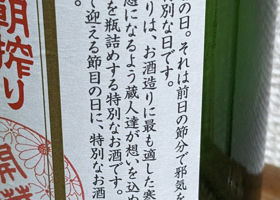 の日。それは前日の節分で邪気を
別な日です。
りは、お酒造りに最も適した寒
になるよう蔵人達が想いを込め
を瓶詰めする特別なお酒です。
て迎える節目の日に、特別なお酒
朝搾り
開